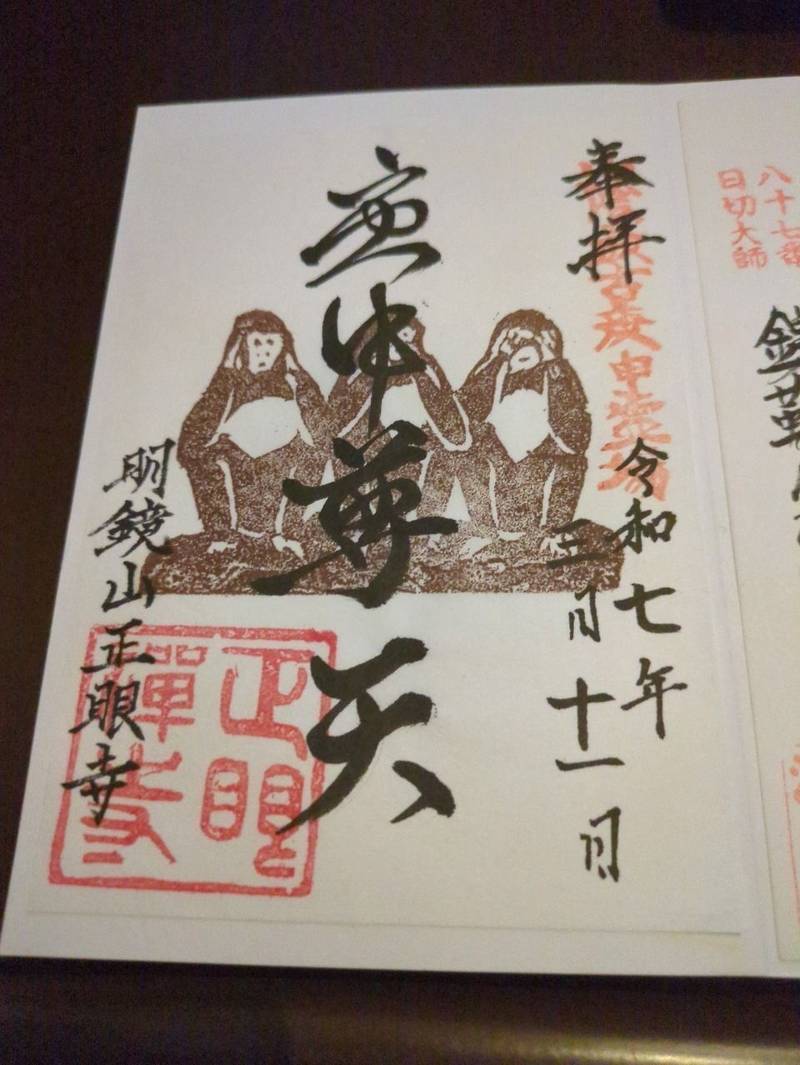 八十七番
日切大師
奉拝
令和七年
三月十一日
庚申尊天
明鏡山正眼寺
正眼
禪寺